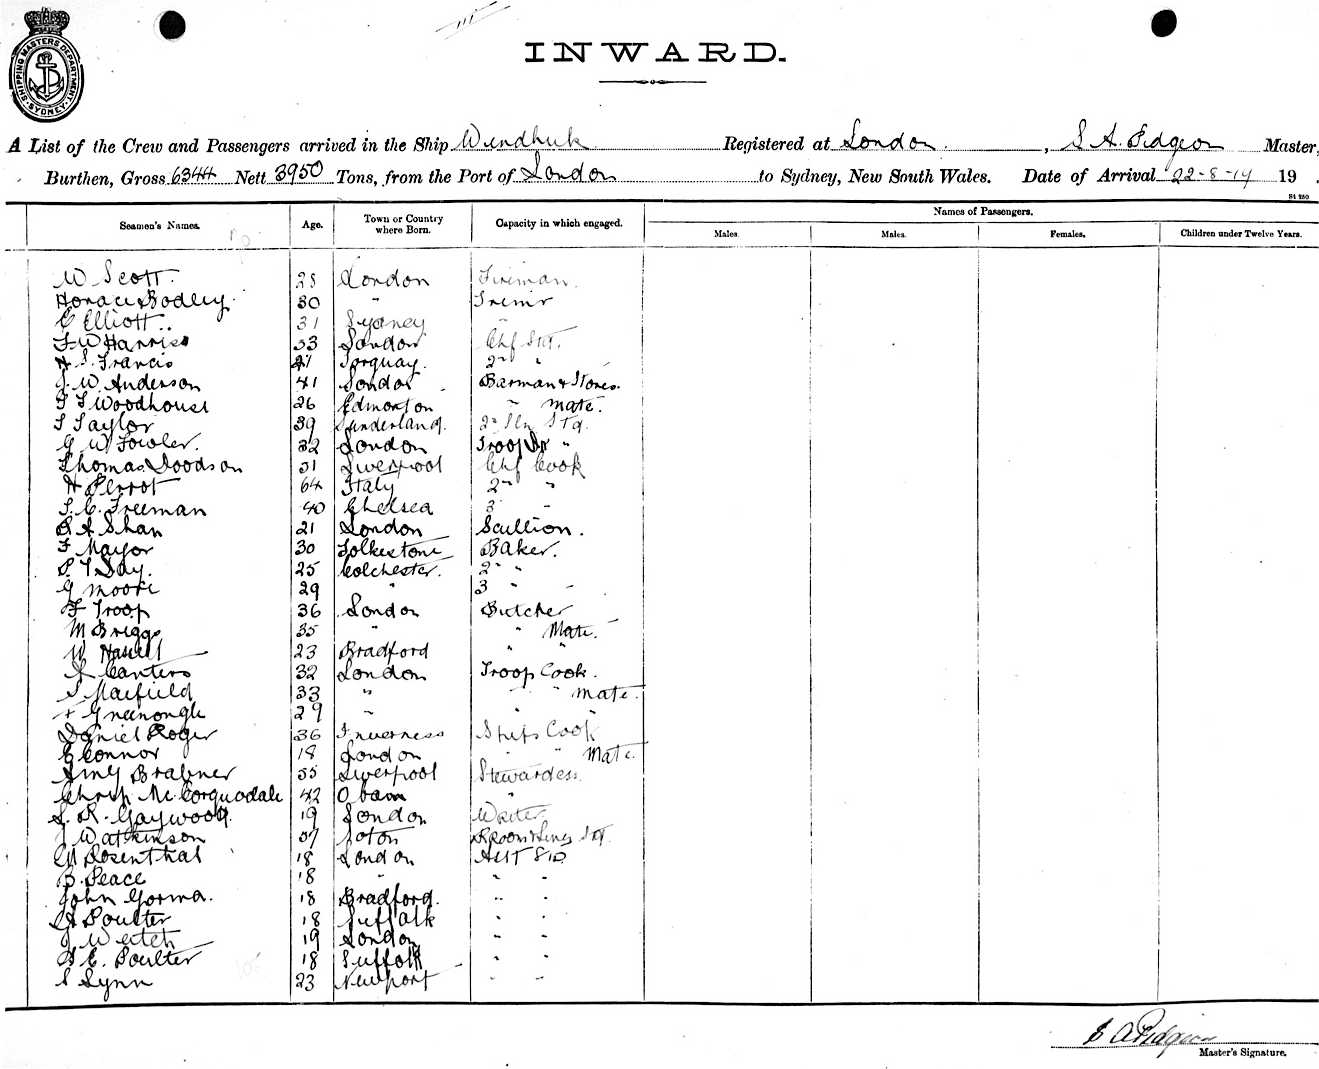 SHIPPING MASTERS DEPARTMENT SYDNEY
INWARD.
A List of the Crew and Passengers arrived in the Ship Windhuk Registered at London, S A. Pidgeon Master,
Burthen, Gross 6344 Nett 3950 Tons, from the Port of London to Sydney, New South Wales. Date of Arrival 22-8-19 19 .
S1 250
Seamen's Names. Age. Town or Country where Born. Capacity in which engaged. Names of Passengers.
Males. Males. Females. Children under Twelve Years.
W Scott. 28 London Fireman.
Horace Bodley 30 " Trimr
C Elliott.. 31 Sydney "
F W Harris 33 London Chf Std.
H S. Francis Torquay. 2nd "
J. W. Anderson 41 London Barman & Stores.
F Woodhouse 26 Edmonton " Mate.
S Taylor 39 Sunderland. 2nd Std.
G W Fowler. 32 London Troop "
Thomas Doodson 31 Liverpool Chf Cook
H Perrot 64 Italy 2nd "
S. C. Freeman 40 Chelsea 3 "
A Shan 21 London Scullion.
F Mayor 30 Folkestone Baker.
P. T Day. 25 Colchester. 2nd "
G Moore 29 " 3 "
F Troop 36 London Butcher
M Briggs 35 " " Mate.
W 23 Bradford " "
Canters 32 London Troop Cook.
S Maifield 33 " " " mate.
Greenough 29 " " "
Daniel Roger 36 Inverness Ships Cook
G Connor 18 London " " Mate.
Amy Brabner 35 Liverpool Stewardess.
Chrisp McCorquodale 42 Oban "
S. R. Gaywood. 19 London Writer.
J Watkinson 37 Soton Std.
Rosenthal 18 London Asst Std
B. Peace 18 " " "
John Gorma. 18 Bradford. " "
A Poulter 18 Suffolk " "
J Weitch 19 London " "
E. Poulter 18 Suffolk " "
S Lynn 23 Newport " "
S A Pidgeon
Master's Signature.